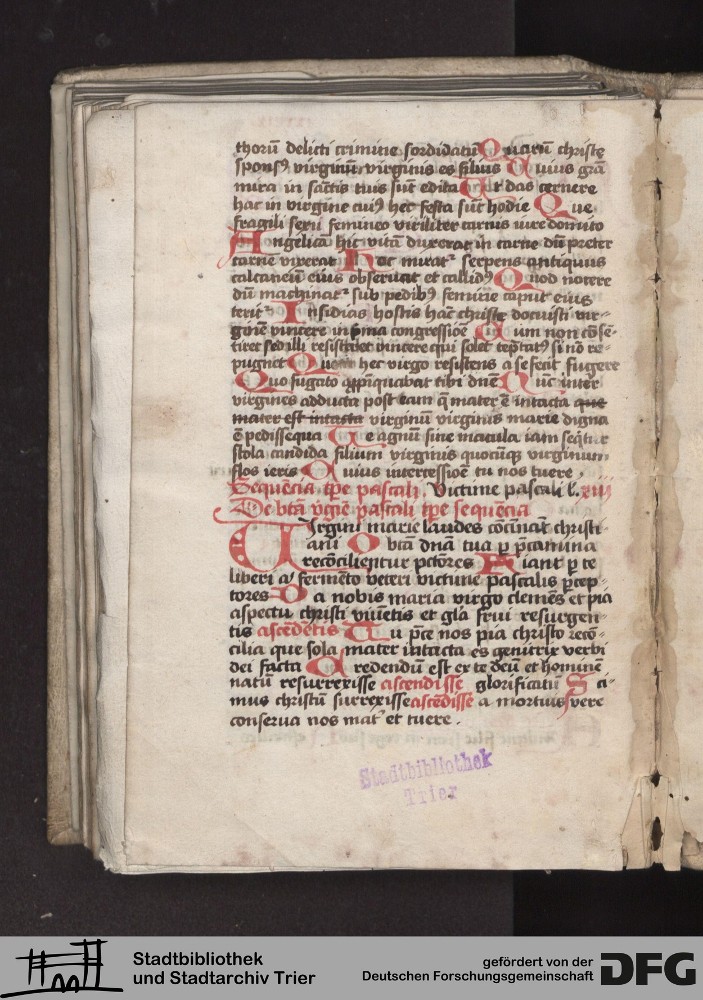 thorū delicti crimine sordidatū Quarū christe
spons⁹ virginū virginis es filius Cuius grā
mira in sāctis tuis sūt edita Et das cernere
hac in virgine cui⁹ hec festa sūt hodie Que
fragili sexū femineo viriliter carnis iure domito
Angelicā hic vitā duxerat in carne dū preter
carnē vixerat Hoc mirat² serpens antiquus
calcaneū eius observat et callid⁹ Quod nocere
dū machinat² sub pedib⁹ femine caput eius
terit² Insidias hostis hac christe docuisti vir-
ginē vincere in p̄ma congressiōe Cum non cōse-
tiret sed illi resisteret vincere qui solet tēptat⁹ si nō re-
pugnet Quem hec virgo resistens a se fecit fugere
Quo fugato appīquabat tibi dn̄e Huic inter
virgines adducta post eam q̄ mater ē intacta que
mater est intacta virginū virginis marie digna
ē pedissequa Te agnū sine macula iam seq̄tur
stola candida filium virginis quocūq virginum
flos ieris Cuius intercessiōe tu nos tuere .
Sequēcia tpe pascali. Victime pascali l. xiii
De btā v̄gīe pascali tpe sequēcia
Virgini marie laudes cōcināt christi
ani O btā dnā tua p p̄camina
recōcilientur pctōres Fiant p te
liberi a fermēto veteri victime pascalis p̄cep-
tores Da nobis maria virgo clemēs et pia
aspectu christi viuētis et glā frui resurgen-
tis ascēdētis Tu p̄ce nos pia christo recō-
cilia que sola mater intacta es genitrix verbi
dei facta Credendū est ex te deū et hominē
natū resurrexisse ascendisse glorificatū Sci-
mus christū surrexisse ascēdisse a mortuis vere
conserva nos mat² et tuere .
Stadtbibliothek
Trier
Stadtbibliothek
und Stadtarchiv Trier
gefördert von der
Deutschen Forschungsgemeinschaft
DFG